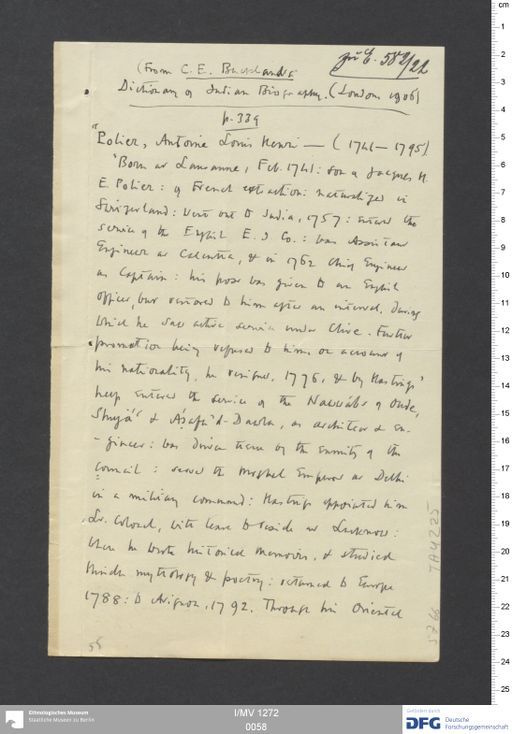 zu E. 582/22
(From C. E. Buckland's
Dictionary of Indian Biography. (London 1906)
p. 339
"Polier, Antoine Louis Henri — (1741–1795)
"Born at Lausanne, Feb. 1741: son of Jacques H.
E. Polier: of French extraction: naturalized in
Switzerland: went out to India, 1757: entered the
service of the English E. I Co.: was Assistant
Engineer at Calcutta, & in 1762 Chief Engineer
as Captain: his post was given to an English
officer, but restored to him after an interval, during
which he saw active service under Clive. Further
promotion being refused to him, on account of
his nationality, he resigned, 1776, & by Hastings'
help entered the service of the Nawabs of Oude,
Shuja & Asafu'd-Daula, as architect & en-
-gineer: was driven thence by the enmity of the
Council: served the Moghul Emperor at Delhi
in a military command: Hastings appointed him
Lt. Colonel, with leave to reside at Lucknow:
there he wrote historical memoirs, & studied
Hindu mythology & poetry: returned to Europe
1788: to Avignon, 1792. Through his Oriental
TA4225
Ethnologisches Museum
Staatliche Museen zu Berlin
I/MV 1272
0058
Gefördert durch
DFG Deutsche
Forschungsgemeinschaft
cm
1
2
3
4
5
6
7
8
9
10
11
12
13
14
15
16
17
18
19
20
21
22
23
24
25